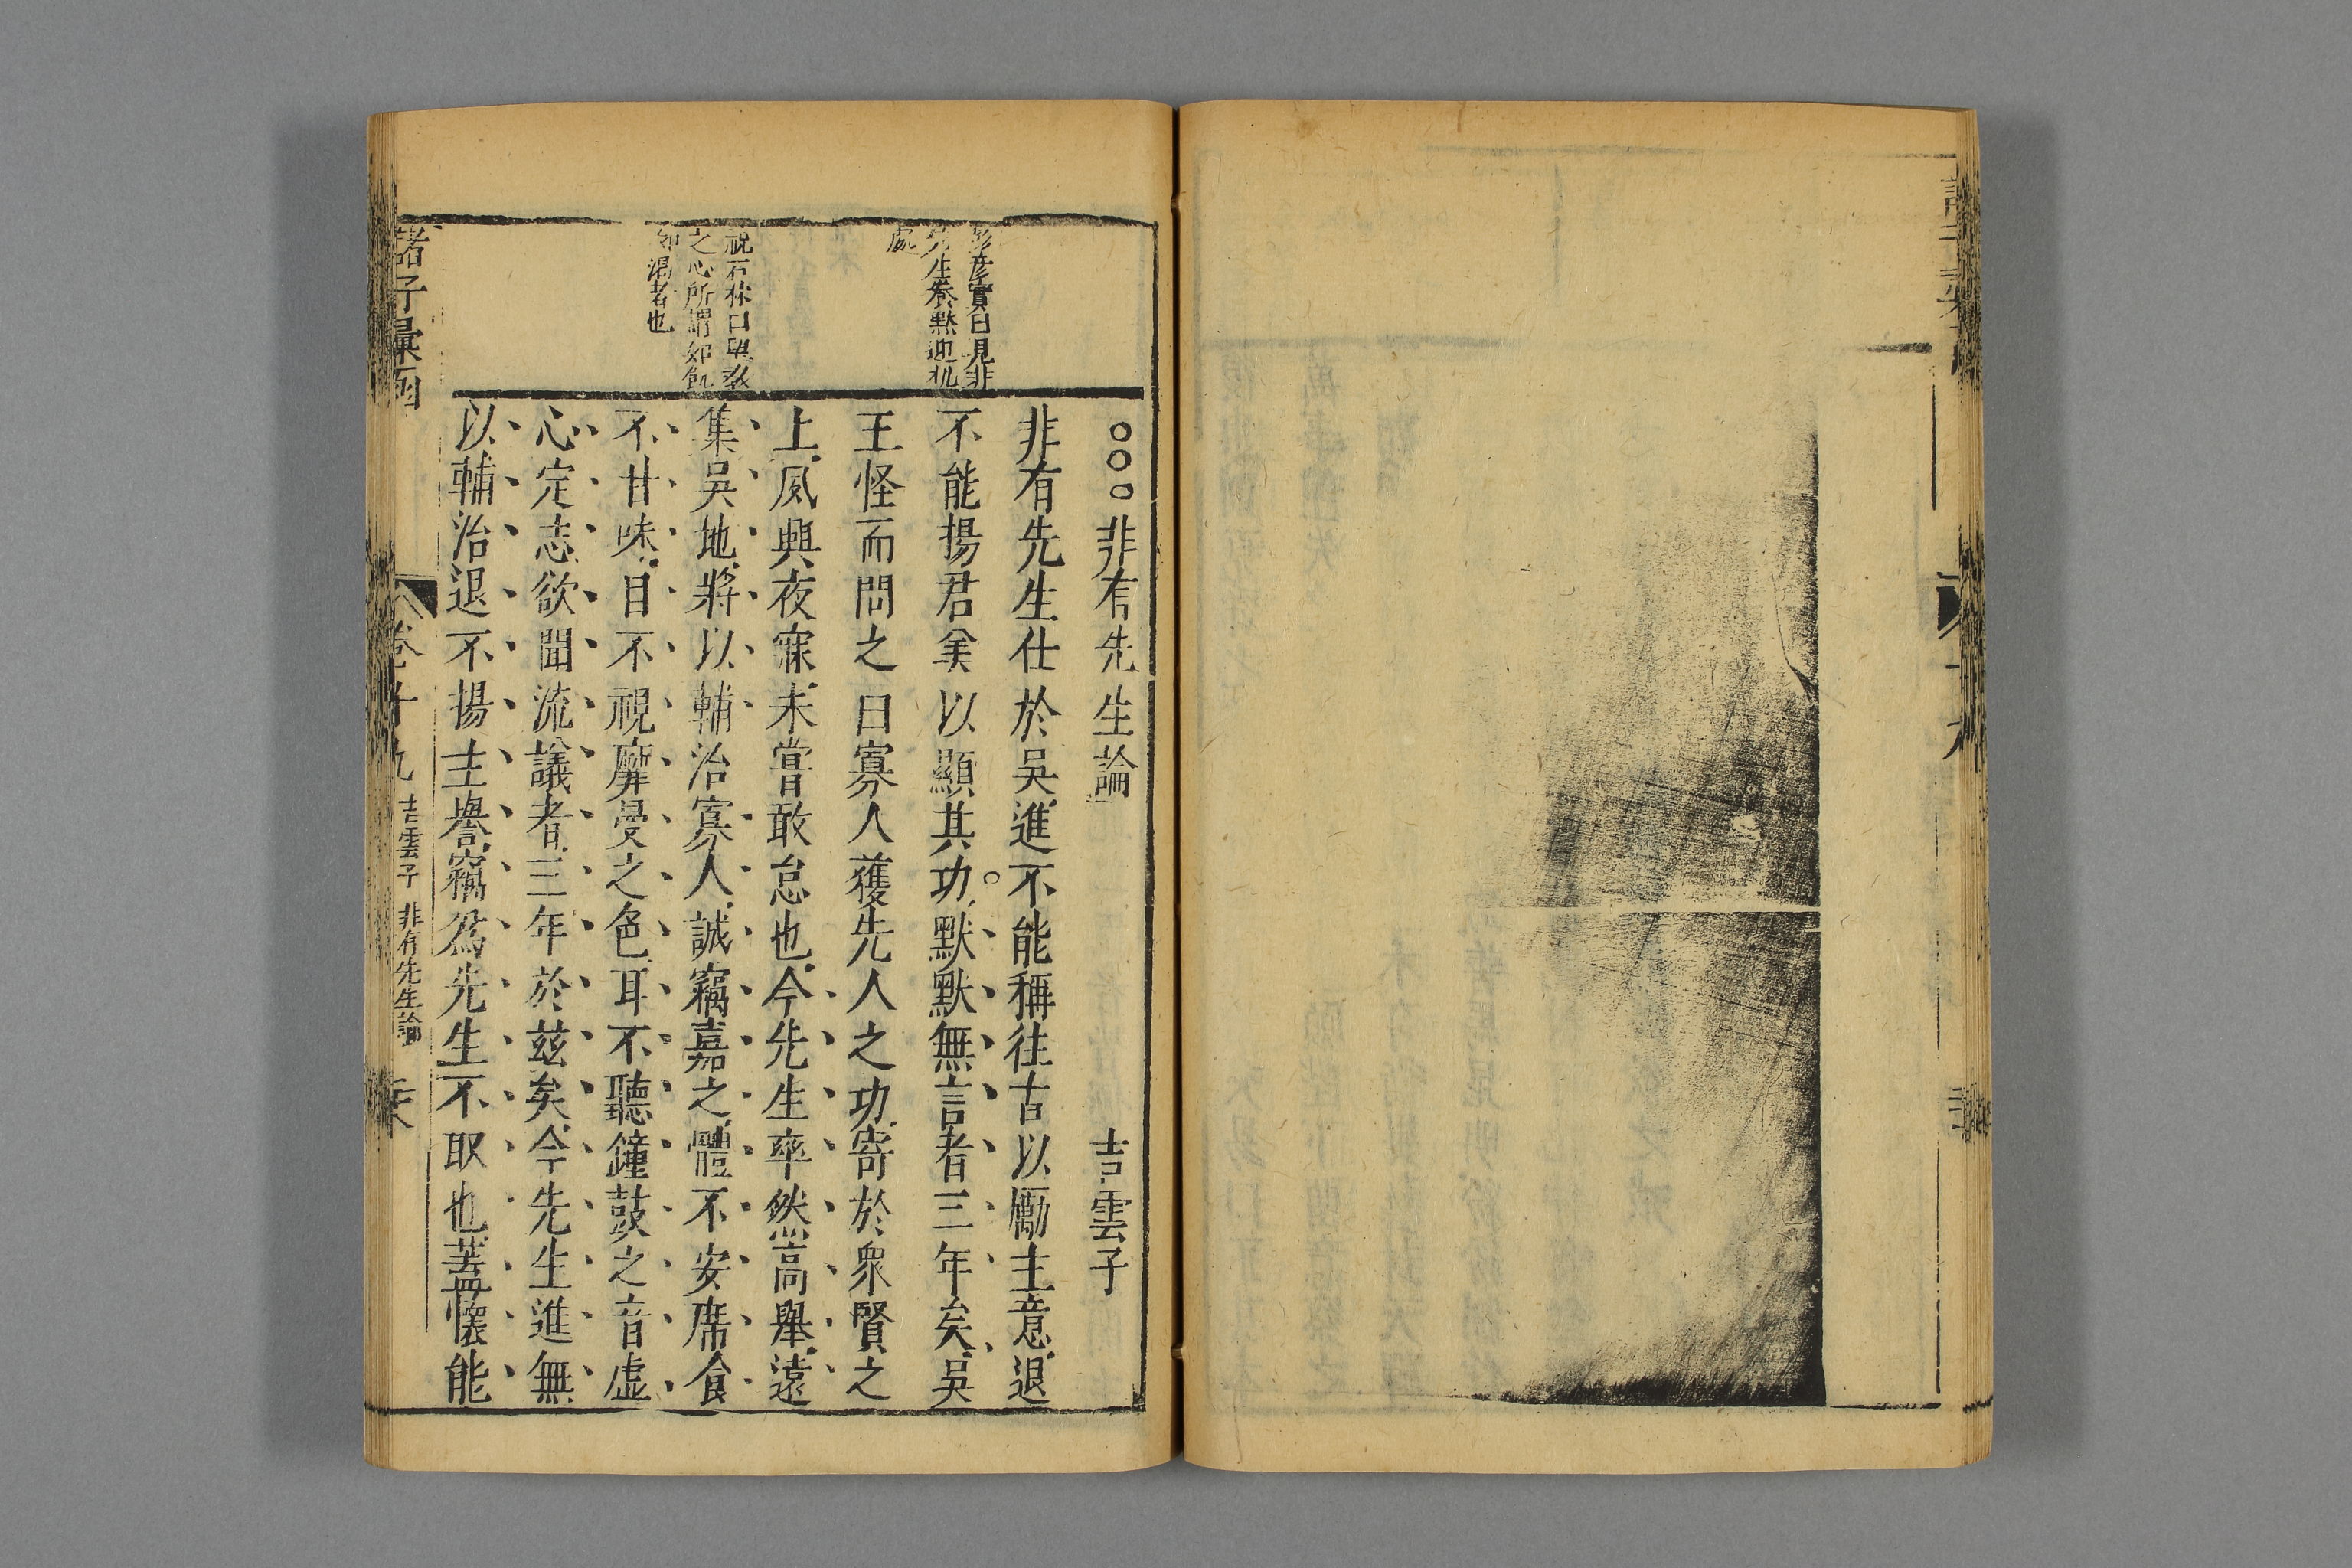 ○○○非有先生論 吉雲子
非有先生仕於吳進不能稱往古以勵主意退
不能揚君美以顯其功默默無言者三年矣吳
王怪而問之曰寡人獲先人之功寄於衆賢之
上夙興夜寐未嘗敢怠也今先生率然高舉遠
集吳地將以輔治寡人誠竊嘉之體不安席食
不甘味目不視靡曼之色耳不聽鐘鼓之音虛
心定志欲聞流議者三年於茲矣今先生進無
以輔治退不揚主譽竊爲先生不取也蓋懷能
彦實曰見非
先生養默迎机
處
祝石林曰吳
之心所謂如飢
如渴者也
諸子彙函
卷十九 吉雲子 非有先生論